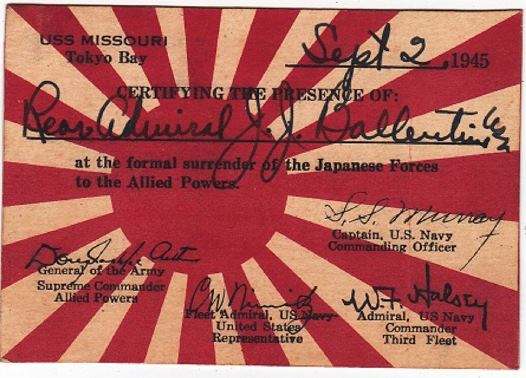 USS MISSOURI
Tokyo Bay
Sept 2, 1945
CERTIFYING THE PRESENCE OF:
Rear Admiral J. J. Ballentine
at the formal surrender of the Japanese Forces
to the Allied Powers.
S. S. Murray
Captain, U.S. Navy
Commanding Officer
General of the Army
Supreme Commander
Allied Powers
C W Nimitz
Fleet Admiral, US Navy
United States
Representative
W F Halsey
Admiral, US Navy
Commander
Third Fleet